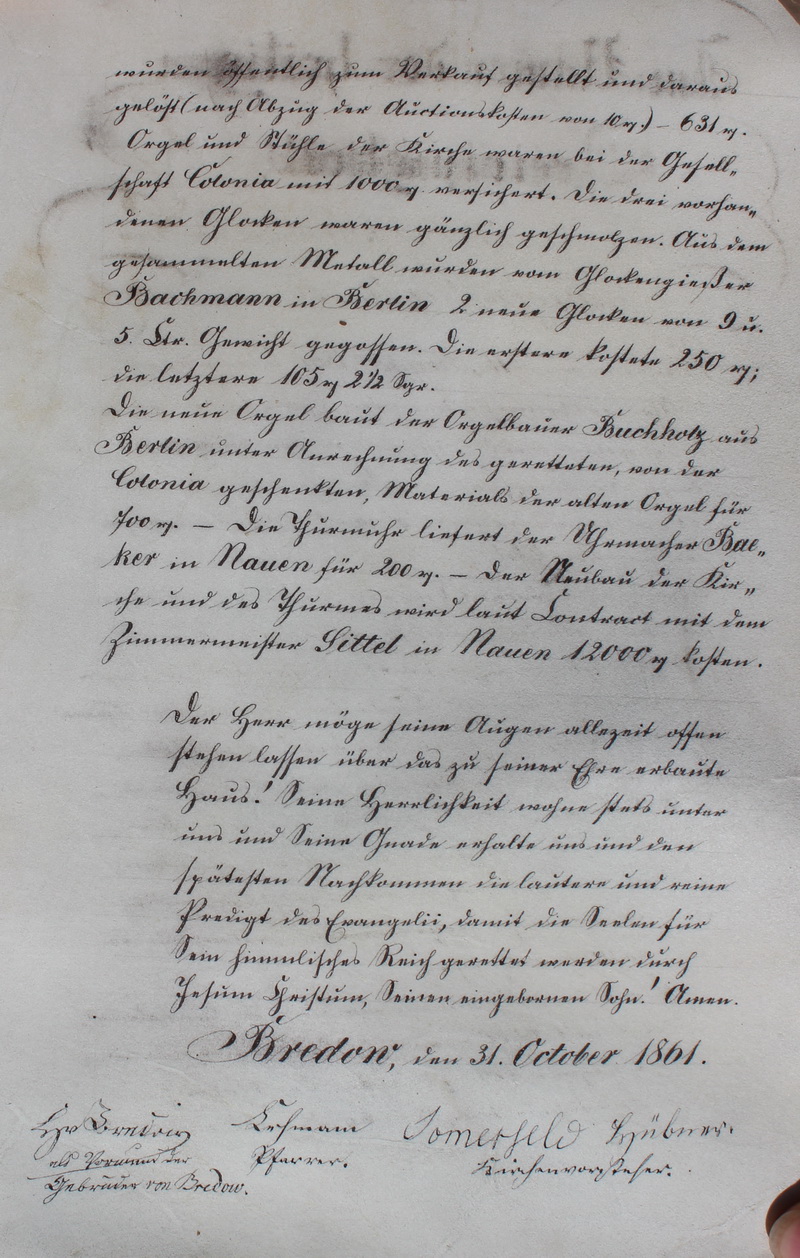 wurden öffentlich zum Verkauf gestellt und daraus
gelöst (nach Abzug der Auctionskosten von 10 rg.) – 631 rg.
Orgel und Stühle der Kirche waren bei der Gesell„
schaft Colonia mit 1000 rg. versichert. Die drei vorhan„
denen Glocken waren gänzlich geschmolzen. Aus dem
gesammelten Metall wurden vom Glockengießer
Bachmann in Berlin 2 neue Glocken von 9 u.
5. Ctr. Gewicht gegossen. Die erstere kostete 250 rg;
die letztere 105 rg 2½ Sgr.
Die neue Orgel baut der Orgelbauer Buchholz aus
Berlin unter Anrechnung des geretteten, von der
Colonia geschenkten, Materials der alten Orgel für
700 rg. – Die Thurmuhr liefert der Uhrmacher Bae„
ker in Nauen für 200 rg. – Der Neubau der Kir„
che und des Thurmes wird laut Contract mit dem
Zimmermeister Sittel in Nauen 12000 rg kosten.
Der Herr möge seine Augen allezeit offen
stehen lassen über das zu seiner Ehre erbaute
Haus! Seine Herrlichkeit wohne stets unter
uns und Seine Gnade erhalte uns und den
spätesten Nachkommen die lautere und reine
Predigt des Evangelii, damit die Seelen für
Sein himmlisches Reich gerettet werden durch
Jesum Christum, Seinen eingebornen Sohn! Amen.
Bredow, den 31. October 1861.
Bredow Lehmann Somerfeld Hübner.
als Vormund der Pfarrer. Kirchenvorsteher.
Gebrüder von Bredow.